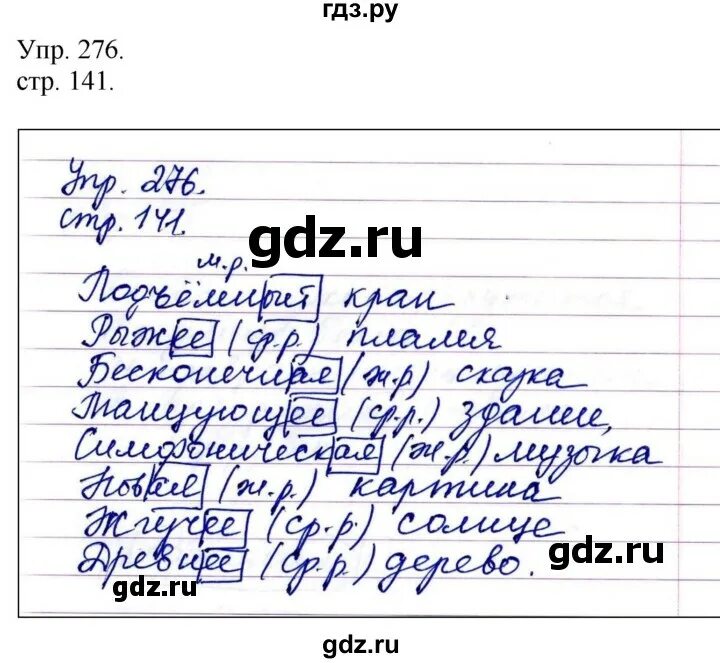 гдз.ру
Упр. 276.
стр. 141.
Упр. 276.
стр. 141.
gdz.ru
м.р.
Подъёмный кран
Рыжее (ср.р.) пламя
Бесконечная (ж.р) сказка
Танцующее (ср.р.) здание,
Симфоническая (ж.р.) музыка
Новая (ж.р.) картина
Жгучее (ср.р.) солнце
gdz.ru
Древнее (ср.р.) дерево.
gdz.ru
gdz.ru